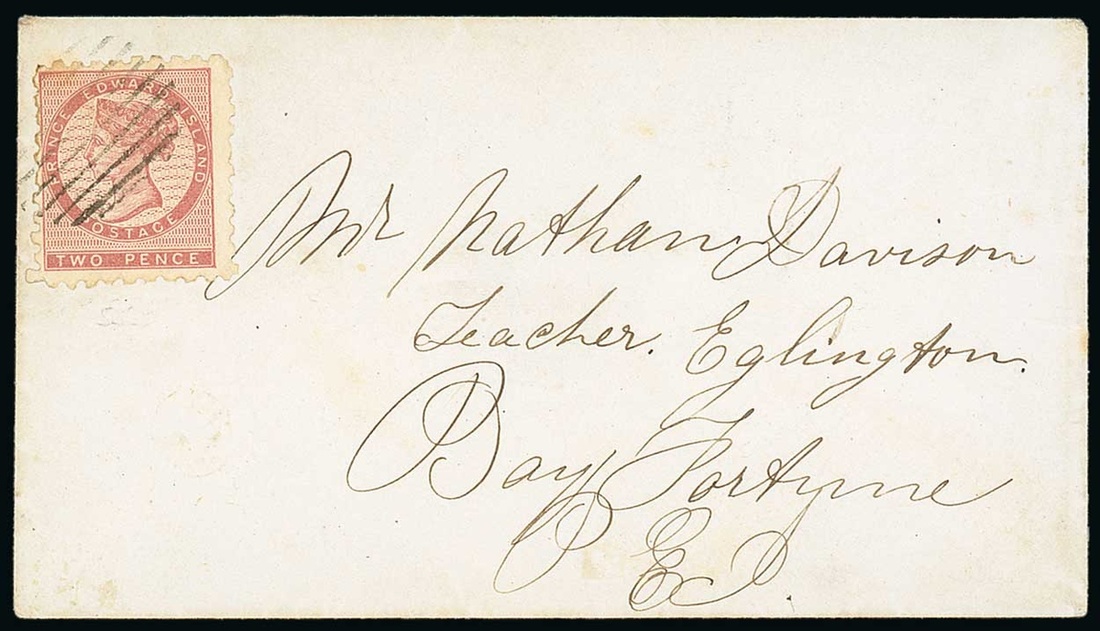 PRINCE EDWARD ISLAND
POSTAGE
TWO PENCE
Mr Nathan Davison
Teacher. Eglington.
Bay Fortyune
P E I